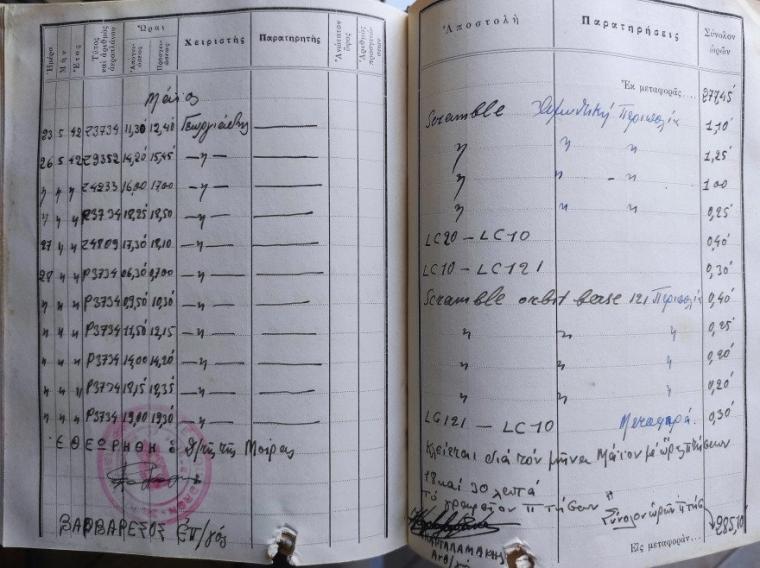 Ἡμέρα Μὴν Ἔτος Τύπος καὶ ἀριθμὸς ἀεροπλάνου Ὧραι Ἀπογειώσεως Προσγειώσεως Χειριστὴς Παρατηρητὴς Ἀνώτατον ὕψος Ἀριθμὸς
Μάϊος
23 5 42 Z3734 11,30 12,40 Γεωργιάδης
26 5 42 Z9352 14,20 15,45 —〃—
〃 〃 〃 Z4233 16,00 17,00 —〃—
〃 〃 〃 P3734 18,25 18,50 —〃—
27 〃 〃 Z4809 17,30 18,10 —〃—
28 〃 〃 P3734 06,30 07,00 —〃—
〃 〃 〃 P3734 09,50 10,30 —〃—
〃 〃 〃 P3734 11,50 12,15 —〃—
〃 〃 〃 P3734 14,00 14,20 —〃—
〃 〃 〃 P3734 18,15 18,35 —〃—
〃 〃 〃 P3734 19,00 19,30 —〃—
ΕΘΕΩΡΗΘΗ ὁ Δ/τὴς τῆς Μοίρας
ΒΑΡΒΑΡΕΣΟΣ Ἐπ/γός
Ἀποστολὴ Παρατηρήσεις Σύνολον ὡρῶν
Ἐκ μεταφορᾶς.... 277,45'
Scramble Περιπολία 1,10'
〃 〃 〃 1,25'
〃 〃 - 〃 1 00
〃 〃 〃 0,25'
LG20 – LG10 0,40'
LG10 – LG121 0,30'
Scramble orbit base 121 Περιπολία 0,40'
〃 〃 〃 0,25'
〃 〃 〃 0,20'
〃 〃 〃 0,20'
LG121 – LG10 Μεταφορά. 0,30'
Κλείεται διά τόν μῆνα Μάϊον μέ ὥρας πτήσεων
18 καί 30 λεπτά
Σύνολον ὡρῶν πτήσ 285,10'
Εἰς μεταφοράν...